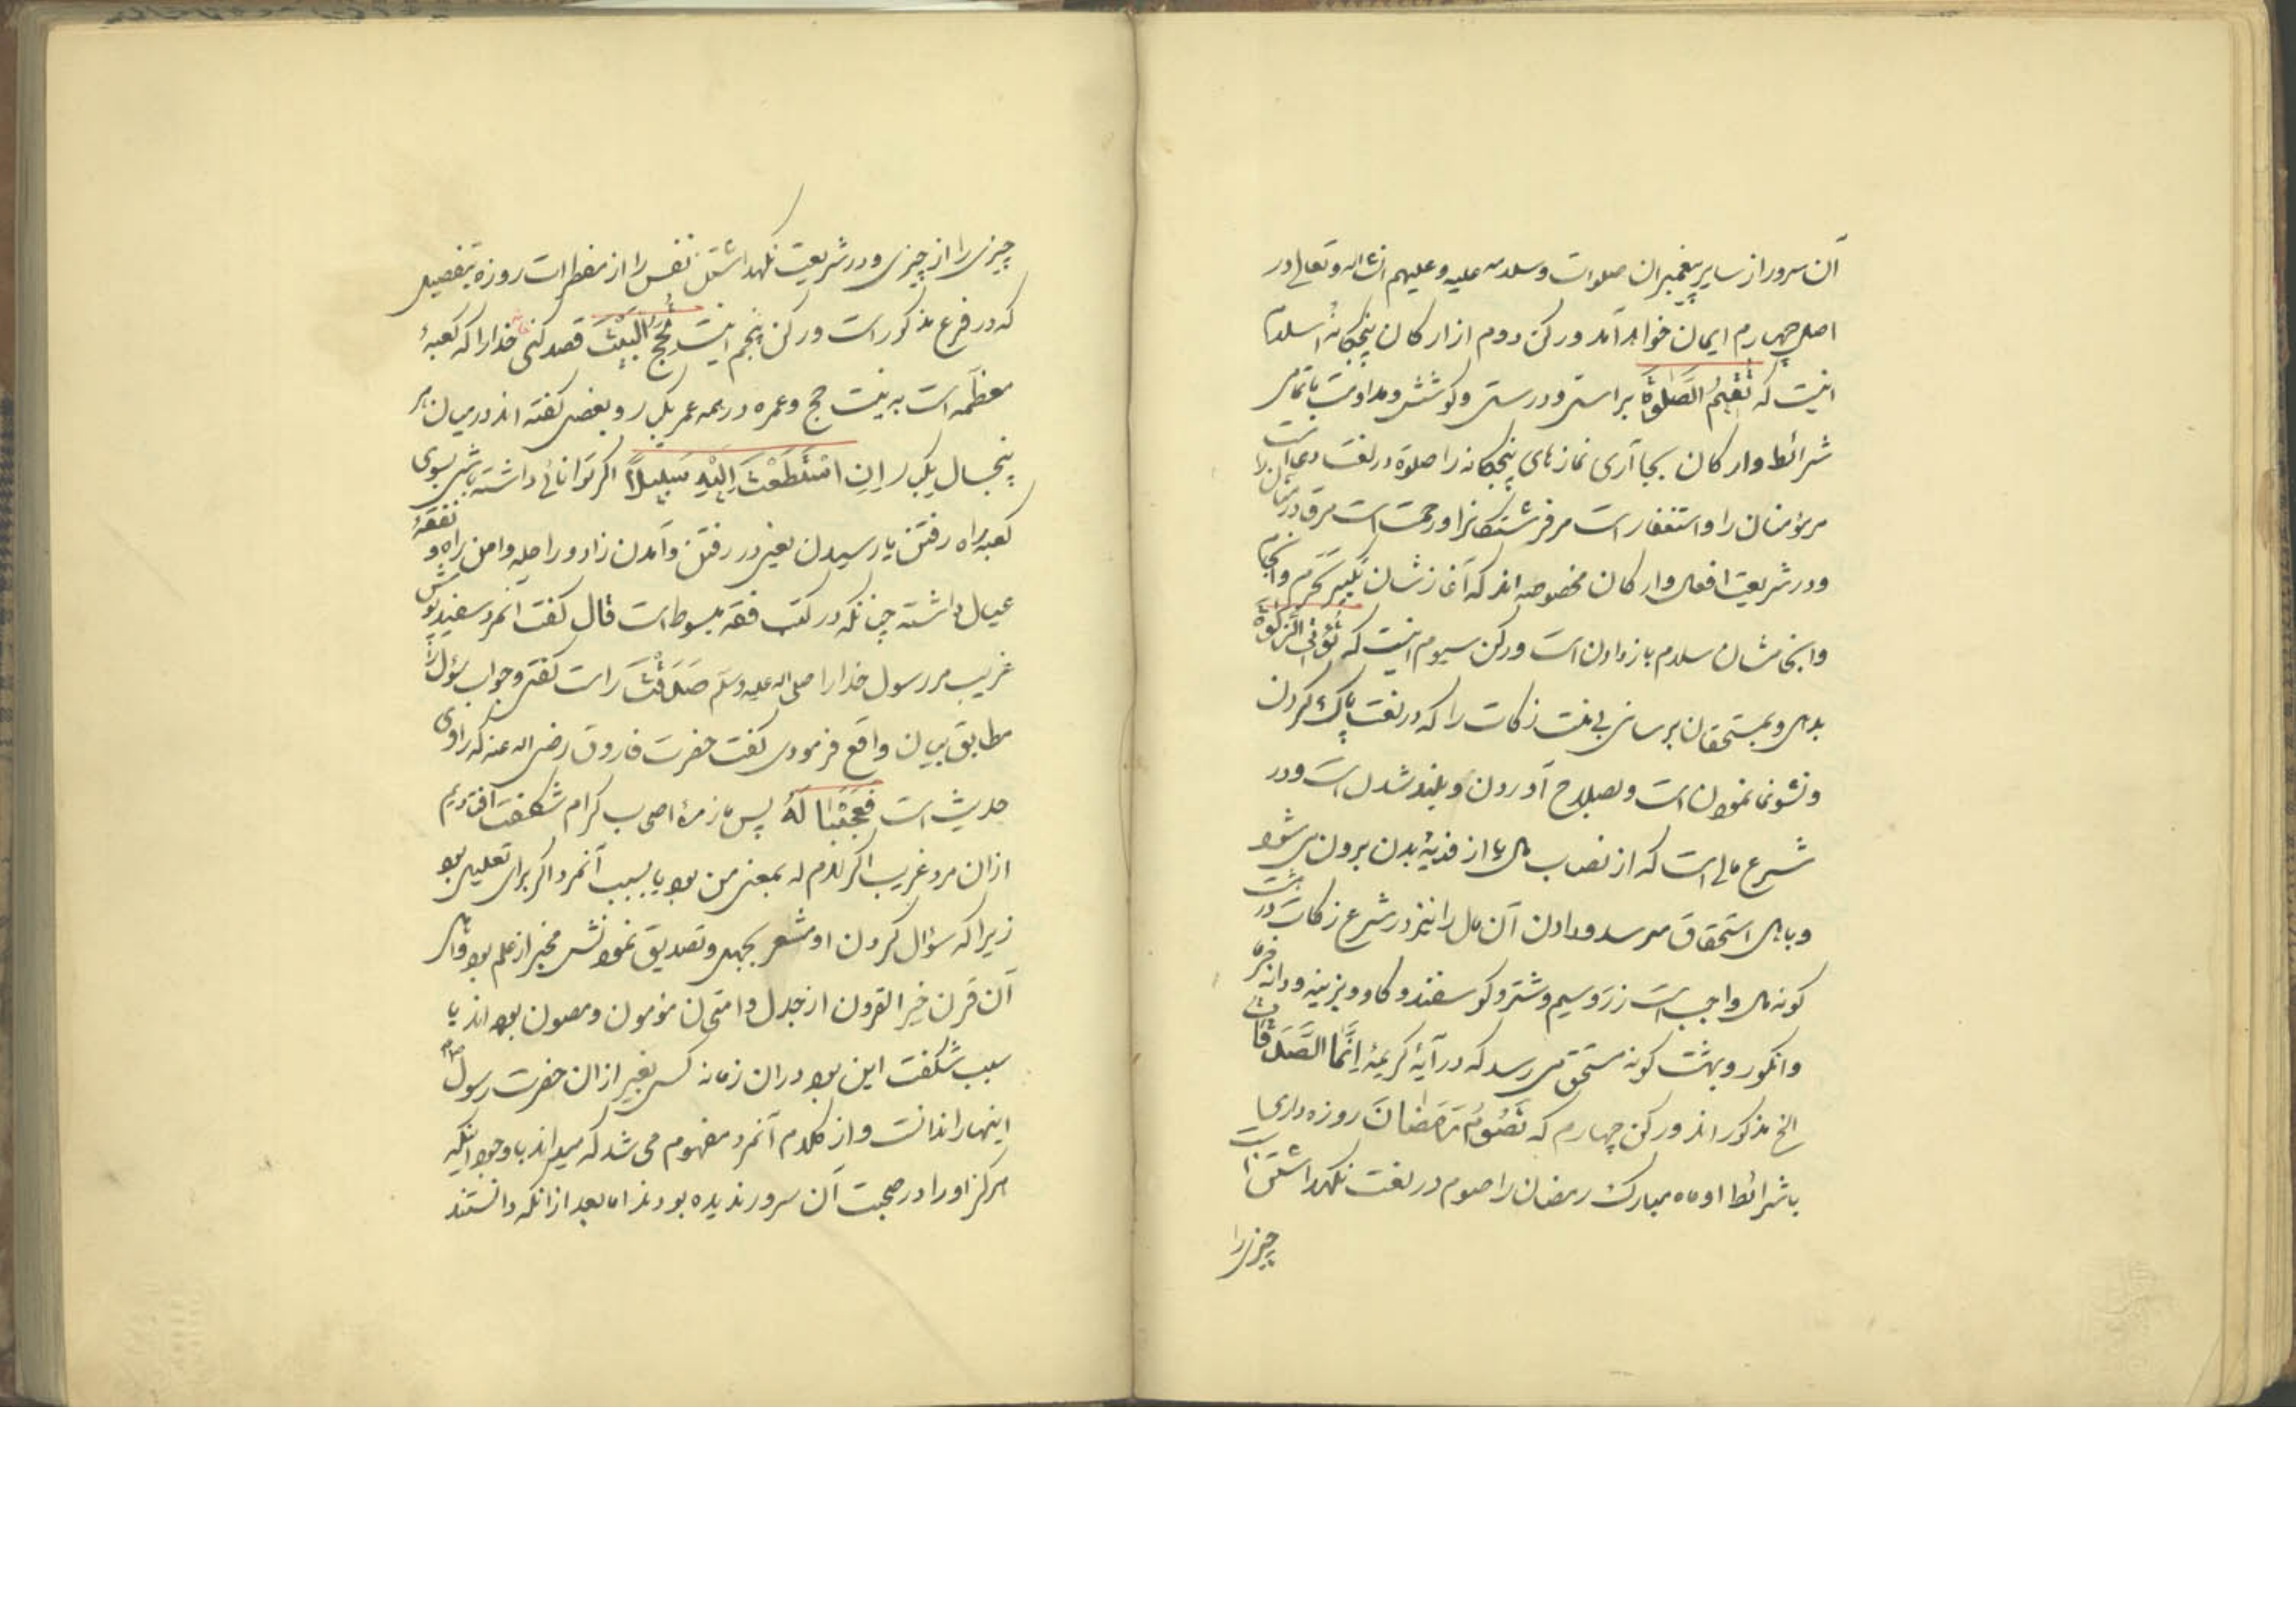 آن سرور از سایر پیغمبران صلوات و سلامه علیه و علیهم انشاء الله تعالی در
اصل چهارم ایمان خواهد آمد و رکن دوم از ارکان پنجکانهٔ اسلام
اینست که تُقِیْمُ الصَّلٰوةَ براستی و درستی و کوشش و مداومت با تمامی
شرائط و ارکان بجا آری نمازهای پنجکانه را صلوة در لغت دعا است
مر مؤمنان را و استغفار است مر فرشتکانرا و رحمت است مر
و در شریعت افعال و ارکان مخصوصه اند که آغاز شان تکبیر تحریم و انجام
و انجامشان سلام باز دادن است و رکن سیوم اینست که تُؤْتِیَ الزَّکٰوةَ
بدهی و بمستحقان برسانی بی منت زکات را که در لغت پاک کردن
و نشو نما نمودن است و بصلاح آوردن و بلند شدن است و در
شرع مالی است که از نصاب مال یا از فدیهٔ بدن برون می شود
و باهل استحقاق میرسد و دادن آن مال را نیز در شرع زکات در هشت
کونه مال واجب است زر و سیم و شتر و کوسفند و کاو و بزینه و دانه
و انکور و بهشت کونه مستحق می رسد که در آیهٔ کریمهٔ اِنَّمَا الصَّدَقَاتُ
الخ مذکور اند و رکن چهارم که تَصُوْمُ رَمَضَانَ روزه داری
با شرائط او ماه مبارک رمضان را صوم در لغت نکهداشتن است
چیزیرا
چیزی را از چیزی و در شریعت نکهداشتن نفس را از مفطرات روزه بتفصیلی
که در فرع مذکور است و رکن پنجم اینست وَ تَحُجَّ الْبَیْتَ قصد کنی خانه خدا را که کعبهٔ
معظمه است به نیت حج و عمره در همه عمر یکبار و بعضی کفته اند در میان هر
پنجسال یکبار اِنِ اسْتَطَعْتَ اِلَیْهِ سَبِیْلًا اکر توانائی داشته باشی بسوی
کعبه راه رفتن یا رسیدن یعنی در رفتن و آمدن زاد و راحله و امن راه و نفقهٔ
عیال داشته چنانکه در کتب فقه مبسوط است قال کفت آنمرد سفید پوش
غریب مر رسول خدا را صلی الله علیه وسلم صَدَقْتَ راست کفتی و جواب سؤال را
مطابق بیان واقع فرمودی کفت حضرت فاروق رضی الله عنه که راوی
حدیث است فَعَجِبْنَا لَهٗ پس ما زمرهٔ اصحاب کرام شکفت افتادیم
ازان مرد غریب اکر لام له بمعنی من بود یا بسبب آنمرد اکر برای تعلیل بود
زیرا که سؤال کردن او مشعر بجهل و تصدیق نمودنش مخبر از علم بود و اهل
آن قرن خیر القرون از جدل و امتحان مؤمون و مصون بوده اند یا
سبب شکفت این بود دران زمانه کسی بغیر ازان حضرت رسول صلعم
اینها را ندانست و از کلام آنمرد مفهوم می شد که میداند با وجود آنکه
هرکز او را در صحبت آن سرور ندیده بودند اما بعد ازانکه دانستند